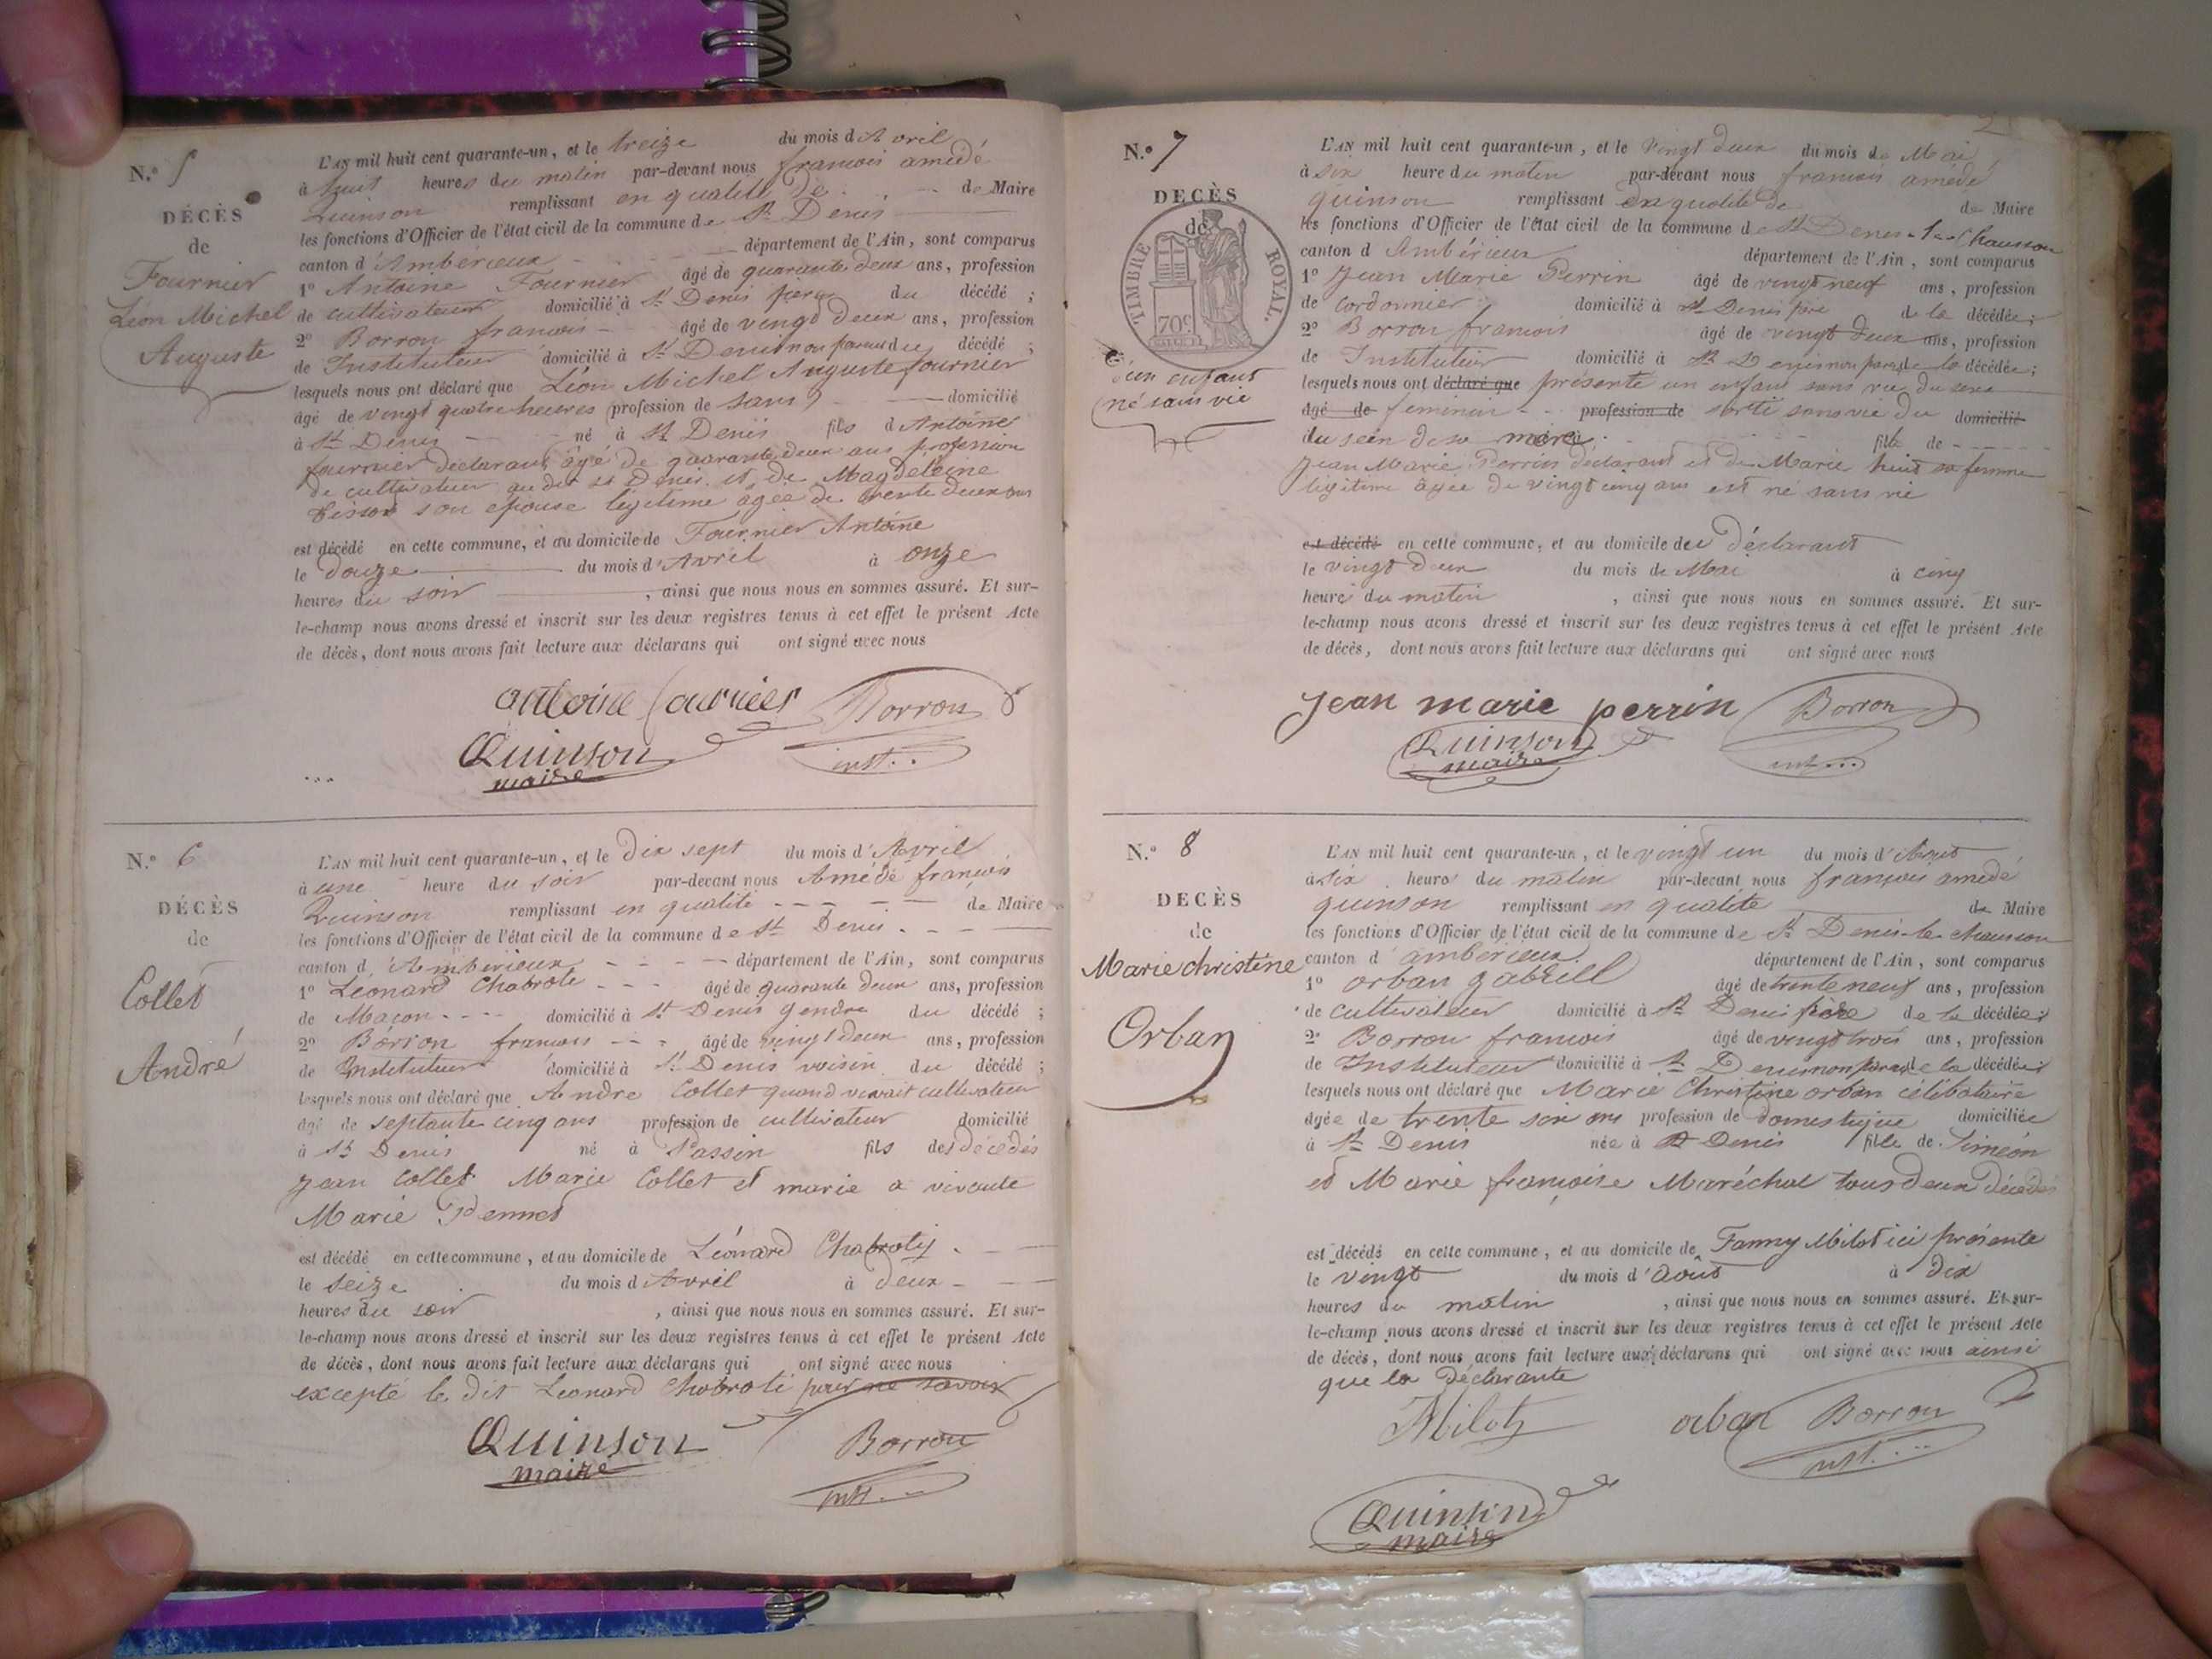 N.° 5
DÉCÈS
de
Fournier
Léon Michel
Auguste
L'AN mil huit cent quarante-un, et le treize du mois d'Avril
à huit heures du matin par-devant nous francois amédé
Quinson remplissant en qualité de de Maire
les fonctions d'Officier de l'état civil de la commune de St Denis
canton d'Ambérieux département de l'Ain, sont comparus
1° Antoine Fournier âgé de quarante deux ans, profession
de cultivateur domicilié à St Denis père du décédé ;
2° Borron francois âgé de vingt deux ans, profession
de Instituteur domicilié à St Denis non parent du décédé ;
lesquels nous ont déclaré que Léon Michel Auguste fournier
âgé de vingt quatre heures profession de sans domicilié
à St Denis né à St Denis fils d'Antoine
fournier déclarant âgé de quarante deux ans profession
de cultivateur au dit St Denis et de Magdeleine
son épouse légitime agée de trente deux ans
est décédé en cette commune, et au domicile de Fournier Antoine
le douze du mois d'Avril à onze
heures du soir , ainsi que nous nous en sommes assuré. Et sur-
le-champ nous avons dressé et inscrit sur les deux registres tenus à cet effet le présent Acte
de décès, dont nous avons fait lecture aux déclarans qui ont signé avec nous
antoine fournier Borron
Quinson inst...
maire
N.° 6
DÉCÈS
de
Collet
André
L'AN mil huit cent quarante-un, et le dix sept du mois d'Avril
à une heure du soir par-devant nous Amédé françois
Quinson remplissant en qualité de Maire
les fonctions d'Officier de l'état civil de la commune de St Denis
canton d'Ambérieux département de l'Ain, sont comparus
1° Léonard Chabrote âgé de quarante deux ans, profession
de Maçon domicilié à St Denis gendre du décédé ;
2° Borron francois âgé de vingt deux ans, profession
de Instituteur domicilié à St Denis voisin du décédé ;
lesquels nous ont déclaré que Andre Collet quand vivait cultivateur
âgé de septante cinq ans profession de cultivateur domicilié
à St Denis né à Passin fils des décédés
Jean Collet Marie Collet et marie a vivante
Marie
est décédé en cette commune, et au domicile de Léonard Chabroty
le seize du mois d'Avril à deux
heures du soir , ainsi que nous nous en sommes assuré. Et sur-
le-champ nous avons dressé et inscrit sur les deux registres tenus à cet effet le présent Acte
de décès, dont nous avons fait lecture aux déclarans qui ont signé avec nous
excepté le dit Leonard Chabroti pour ne savoir
Quinson Borron
maire inst...
2
N.° 7
DECÈS
de
TIMBRE ROYAL.
70c
d'un enfant
né sans vie
L'AN mil huit cent quarante-un, et le vingt deux du mois de Mai
à six heure du matin par-devant nous francois amédé
quinson remplissant en qualité de de Maire
les fonctions d'Officier de l'état civil de la commune de St Denis-le-Chausson
canton d'Ambérieux département de l'Ain, sont comparus
1° Jean Marie Perrin âgé de vingt neuf ans, profession
de Cordonnier domicilié à St Denis père de la décédée ;
2° Borron francois âgé de vingt deux ans, profession
de Instituteur domicilié à St Denis non parent de la décédée ;
lesquels nous ont déclaré que présenté un enfant sans vie du sexe
âgé de feminin profession de sorti sans vie du domicilié
du sein de sa mère fille de
Jean Marie Perrin déclarant et de Marie huit sa femme
légitime âgée de vingt cinq ans est né sans vie
est décédé en cette commune, et au domicile du déclarant
le vingt deux du mois de Mai à cinq
heures du matin , ainsi que nous nous en sommes assuré. Et sur-
le-champ nous avons dressé et inscrit sur les deux registres tenus à cet effet le présent Acte
de décès, dont nous avons fait lecture aux déclarans qui ont signé avec nous
Jean marie perrin Borron
Quinson inst...
maire
N.° 8
DECÈS
de
Marie christine
Orban
L'AN mil huit cent quarante-un, et le vingt un du mois d'Aout
à six heure du matin par-devant nous françois amédé
quinson remplissant en qualité de Maire
les fonctions d'Officier de l'état civil de la commune de St Denis-le-chausson
canton d'ambérieux département de l'Ain, sont comparus
1° orban gabriell âgé de trente neuf ans, profession
de cultivateur domicilié à St Denis frère de la décédée ;
2° Borron francois âgé de vingt trois ans, profession
de Instituteur domicilié à St Denis non parent de la décédée ;
lesquels nous ont déclaré que Marie Christine orban célibataire
âgée de trente six ans profession de domestique domiciliée
à St Denis née à St Denis fille de Siméon
et Marie françoise Maréchal tous deux décédés
est décédé en cette commune, et au domicile de Fanny Milot ici présente
le vingt du mois d'aout à dix
heures du matin , ainsi que nous nous en sommes assuré. Et sur-
le-champ nous avons dressé et inscrit sur les deux registres tenus à cet effet le présent Acte
de décès, dont nous avons fait lecture aux déclarans qui ont signé avec nous ainsi
que la déclarante
Milot orban Borron
inst...
Quinson
maire